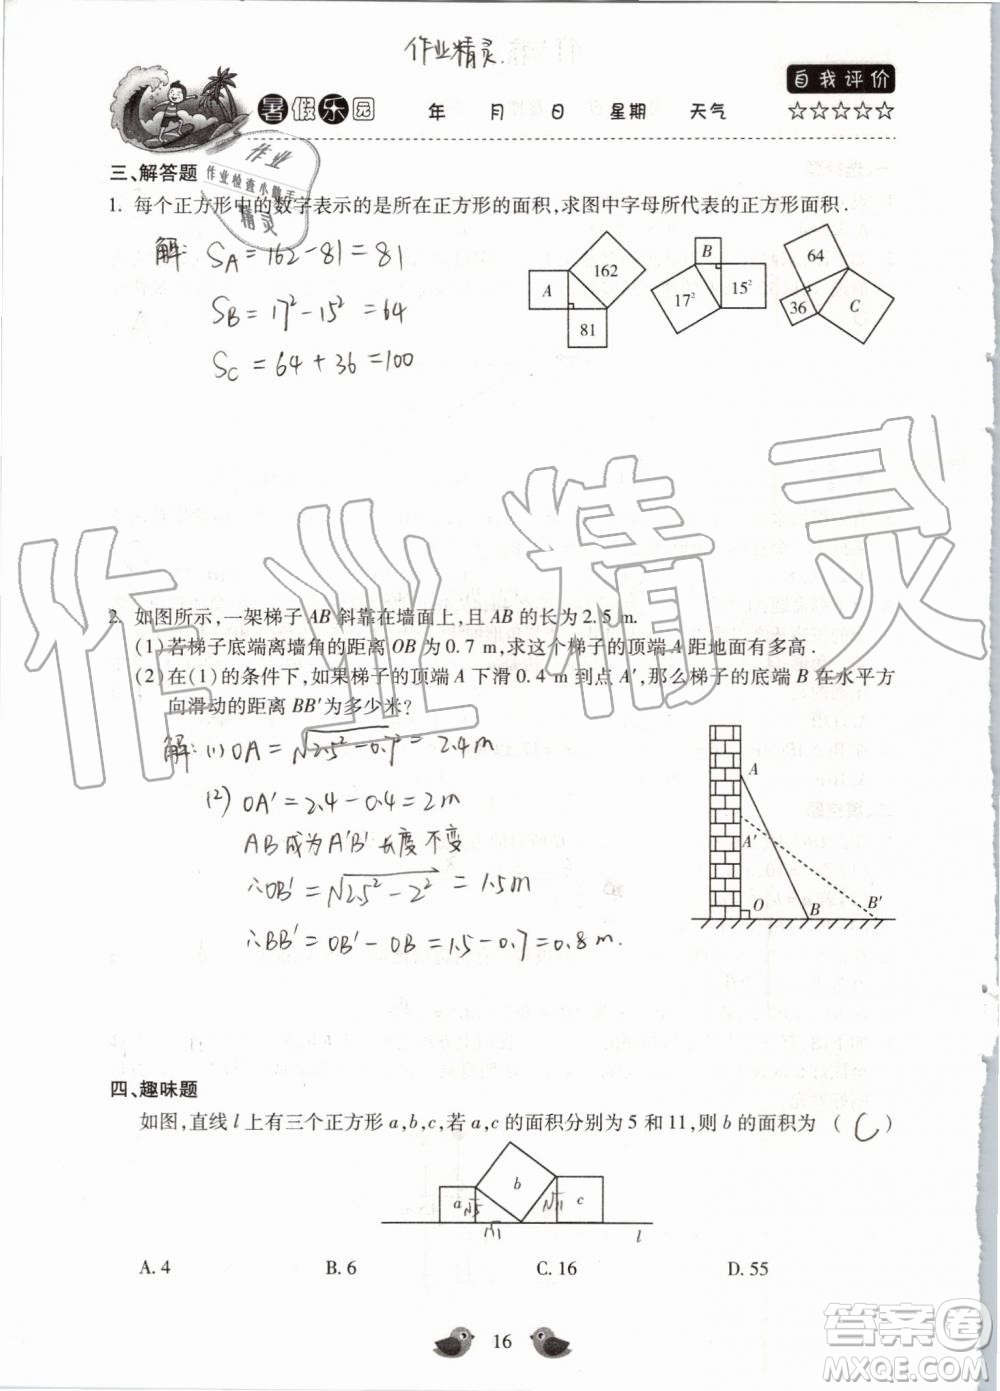 作业精灵.
自我评价
暑假乐园 年 月 日 星期 天气 ☆☆☆☆☆
三、解答题
作业
作业检查小帮手
精灵
1. 每个正方形中的数字表示的是所在正方形的面积,求图中字母所代表的正方形面积.
解: S_A=162-81=81
S_B=17²-15²=64
S_C=64+36=100
A 162 81
B 17² 15²
64 36 C
作业精灵
2. 如图所示,一架梯子 AB 斜靠在墙面上,且 AB 的长为 2.5 m.
(1)若梯子底端离墙角的距离 OB 为 0.7 m,求这个梯子的顶端 A 距地面有多高.
(2)在(1)的条件下,如果梯子的顶端 A 下滑 0.4 m 到点 A′,那么梯子的底端 B 在水平方
向滑动的距离 BB′为多少米?
解: (1) OA=√2.5²-0.7²=2.4m
(2) OA'=2.4-0.4=2m
AB成为A'B'长度不变
∴OB'=√2.5²-2²=1.5m
∴BB'=OB'-OB=1.5-0.7=0.8m.
A
A′
O B B′
四、趣味题
如图,直线 l 上有三个正方形 a,b,c,若 a,c 的面积分别为 5 和 11,则 b 的面积为 ( C )
a √5 b √11 c
√11 l
A. 4 B. 6 C. 16 D. 55
16
答案卷
MXQE.COM